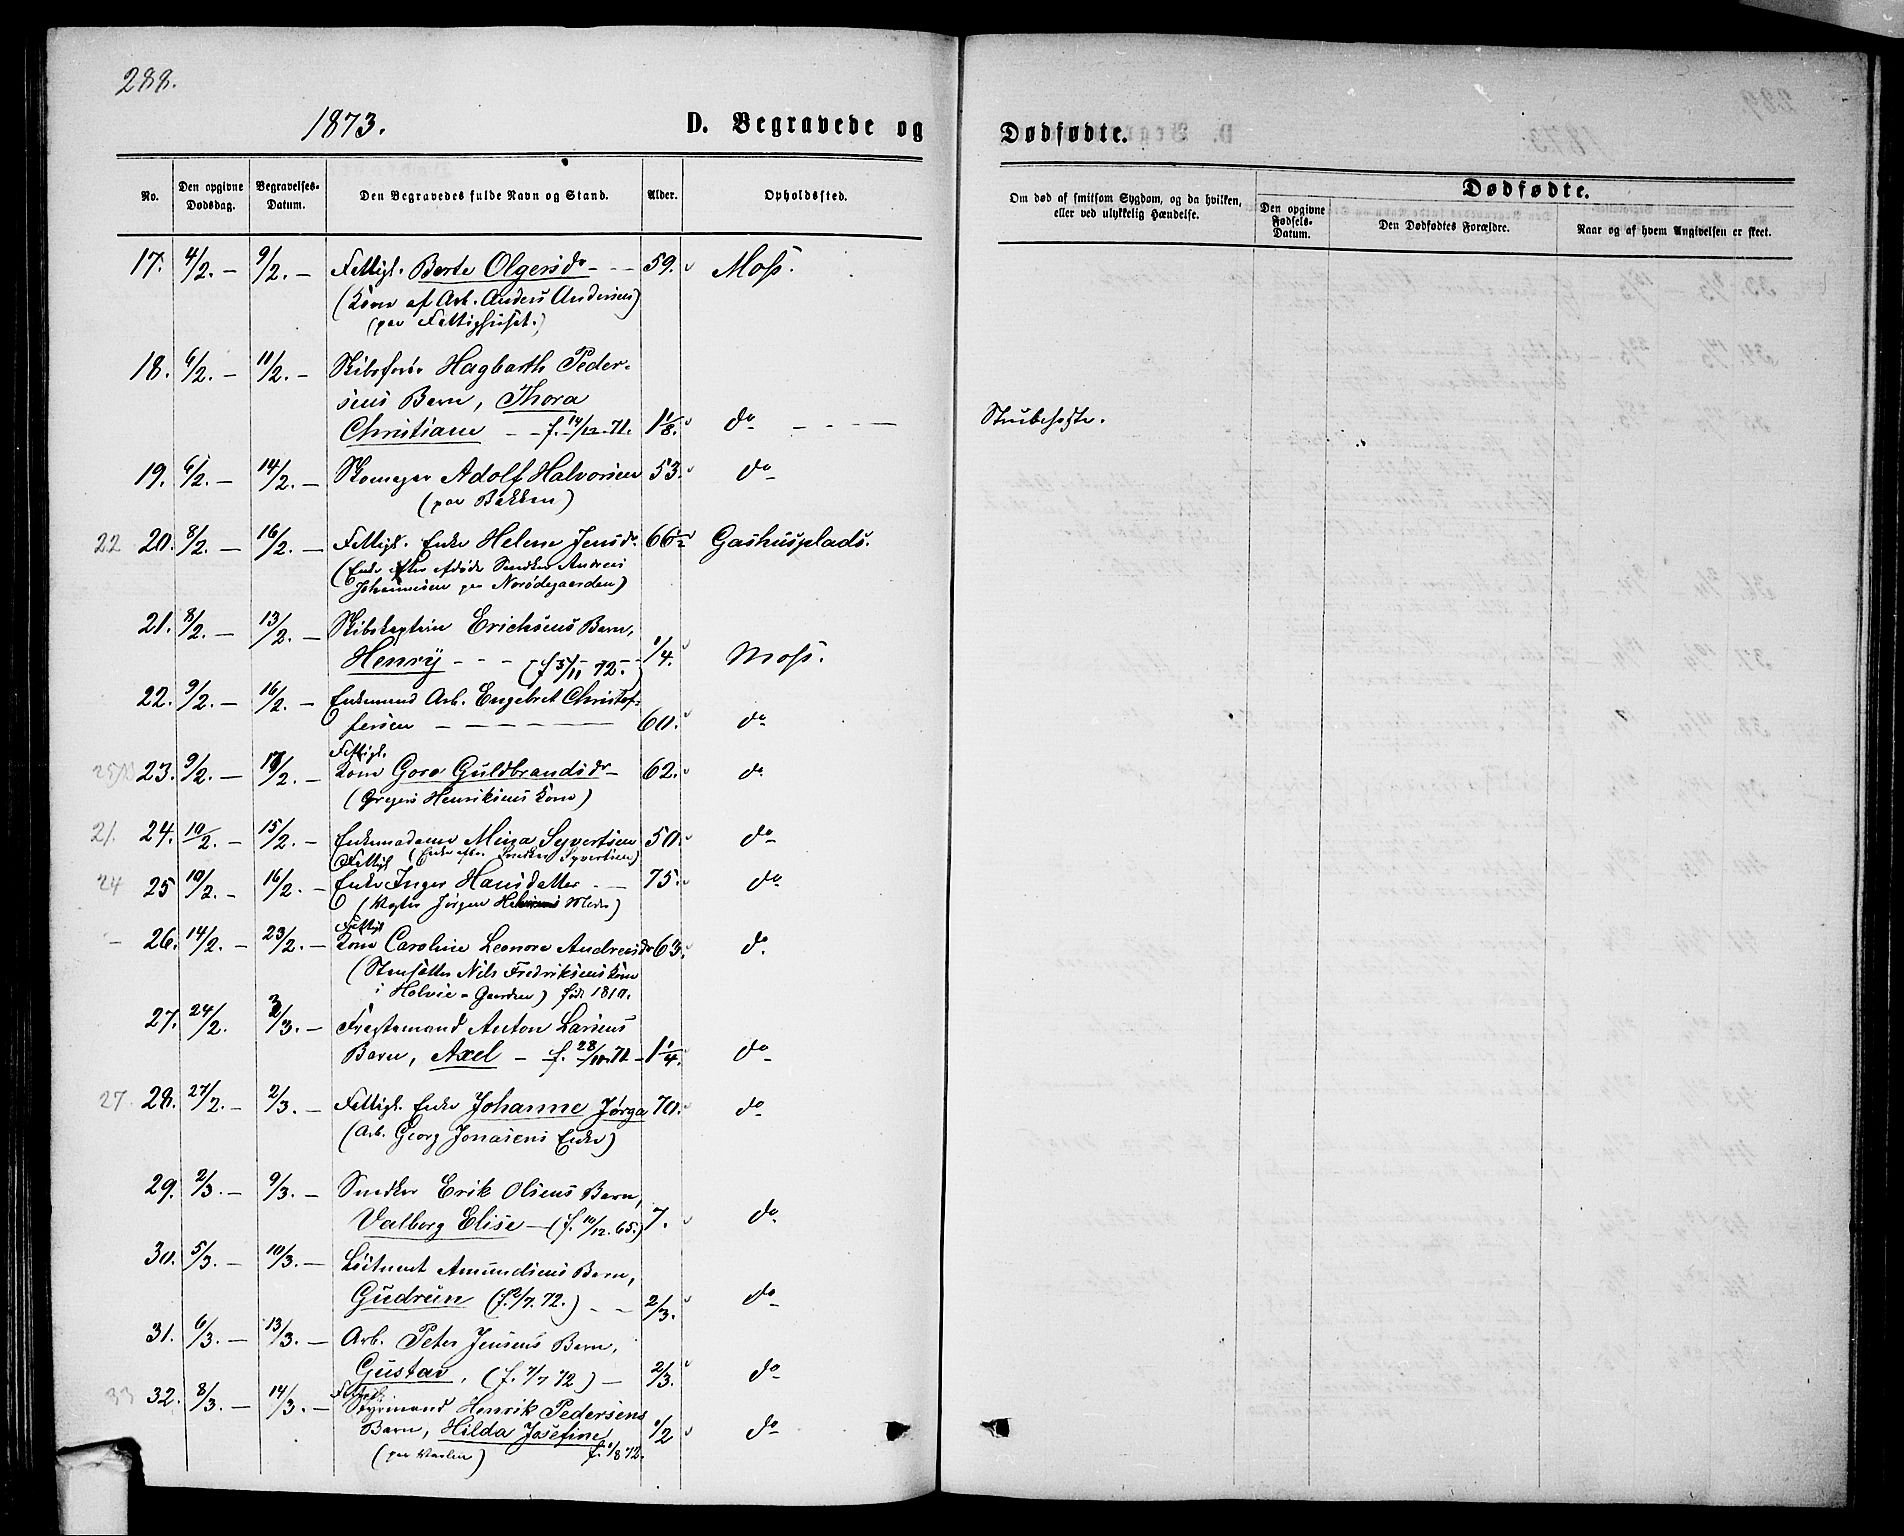 288.
1873.
D. Begravede og
Dødfødte.
No.
Den opgivne Dødsdag.
Begravelses-Datum.
Den Begravedes fulde Navn og Stand.
Alder.
Opholdssted.
Om død af smitsom Sygdom, og da hvilken, eller ved ulykkelig Hændelse.
Dødfødte.
Den opgivne Fødsels-Datum.
Den Dødfødtes Forældre.
Naar og af hvem Angivelsen er skeet.
17. 4/2. — 9/2. — Fattigl. Berte Olgersdr - - 59. Moss.
(Kone af Arb. Anders Andersen)
(paa Fattighuset.)
18. 6/2. — 11/2. — Skibsfører Hagbarth Peder-
sens Barn, Thora
Christiane - - f. 14/12 71. 1 1/8. do - - - - Strubehoste.
19. 6/2. — 14/2. — Skomager Adolf Halvorsen 53. do
(paa Bakken)
22 20. 8/2. — 16/2. — Fattigl. Enke Helene Jensdr. 66 1/2 Gashusplads.
(Enke efter afdøde Snedker Andreas
Johannesen paa Norødegaarden)
21. 8/2. — 13/2. — Skibskaptein Ericksens Barn,
Henrÿ - - - (f. 5/11 72.) 1/4. Moss.
22. 9/2. — 16/2. — Enkemand Arb. Engebret Christof-
fersen - - - - - - 60. do
Fattigl.
23. 9/2. — 17/2. — Kone Goro Guldbrandsdr 62. do
(Gregers Henriksens Kone)
21. 24. 10/2. — 15/2. — Enkemadame Mina Syvertsen 50. do
(Enke efter Snedker Syvertsen)
Fattigl
24 25 10/2. — 16/2. — Enke Inger Hansdatter - - 75. do
(Vægter Jørgen Moder)
Fattigl
- 26. 14/2. — 23/2. — Kone Caroline Leonore Andreasdr 63. do.
(Stensætter Nils Fredriksens Kone
i Holvie-Gaarden) født 1810.
27. 24/2. 3/3. — Fragtemand Anton Larsens
Barn, Axel — f. 28/10 71 - 1 1/4. do
27. 28. 27/2. — 2/3. — Fattigl. Enke Johanne Jørga 70. do
(Arb. Georg Jonasens Enke)
29. 2/3. — 9/3. — Snedker Erik Olsens Barn,
Valborg Elise — (f. 10/12. 65.) 7. do
30. 5/3. — 10/3. — Löitnant Amundsens Barn,
Gudrun (f. 2/7. 72.) - - 2/3. do
31. 6/3. — 13/3. — Arb. Peter Jensens Barn,
Gustav, (f. 7/7 72) — 2/3. do
Fattigl.
33 32. 8/3. — 14/3. — Styrmand Henrik Pedersens
Barn, Hilda Josefine 1/2 do
(paa Værlen) f. 1/8 72.